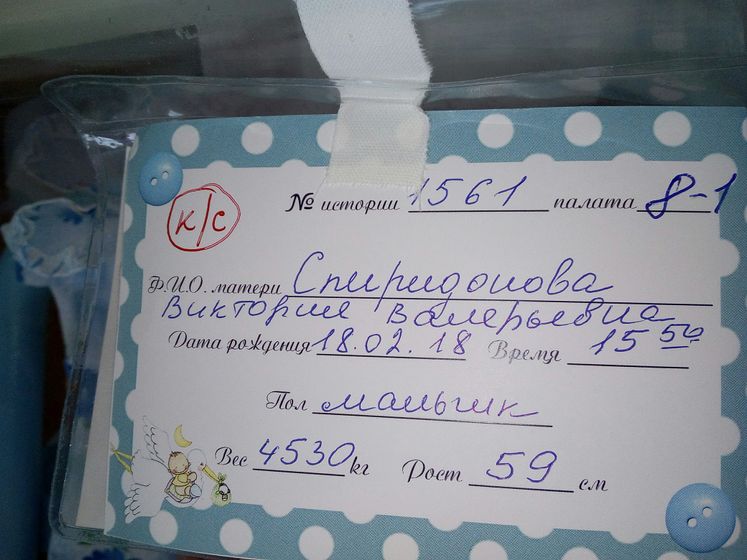 № истории 1561 палата 8-1
к/с
Ф.И.О. матери Спиридонова
Виктория Валерьевна
Дата рождения 18.02.18 Время 15 50
Пол мальчик
Вес 4530 кг Рост 59 см